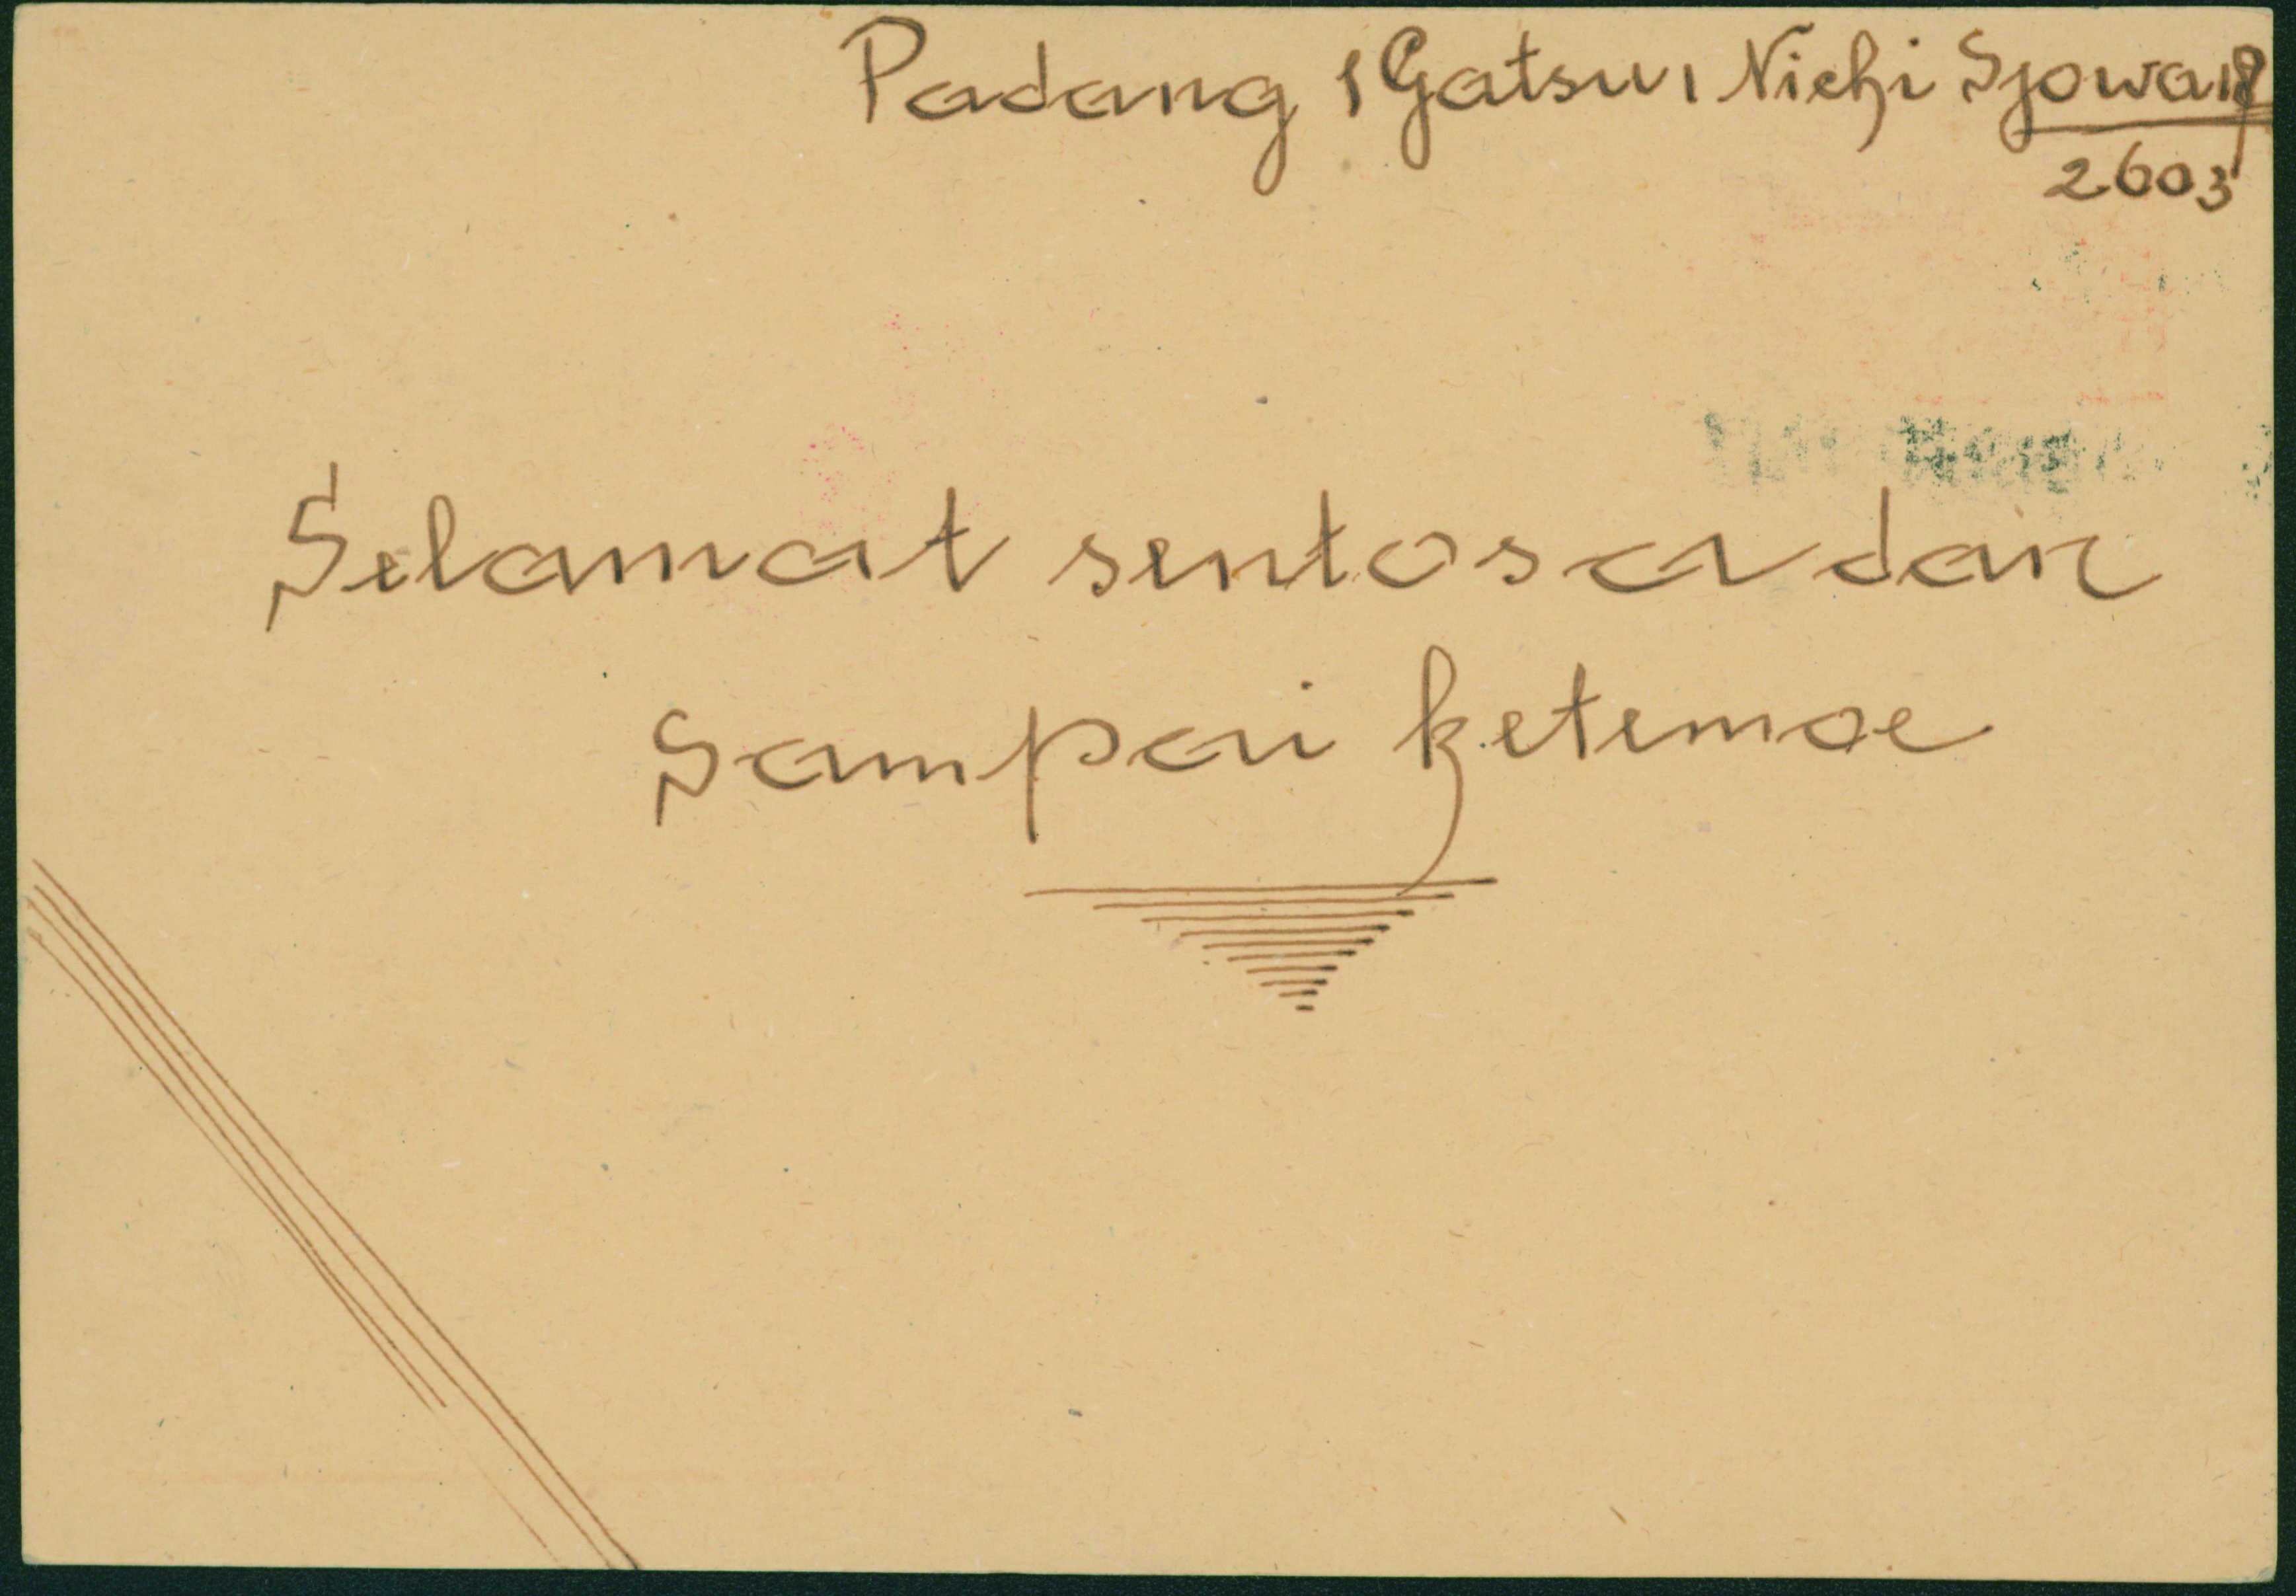 Padang 1 Gatsu 1 Nichi Sjowa 18
2603
Selamat sentosa dan
Sampai ketemoe